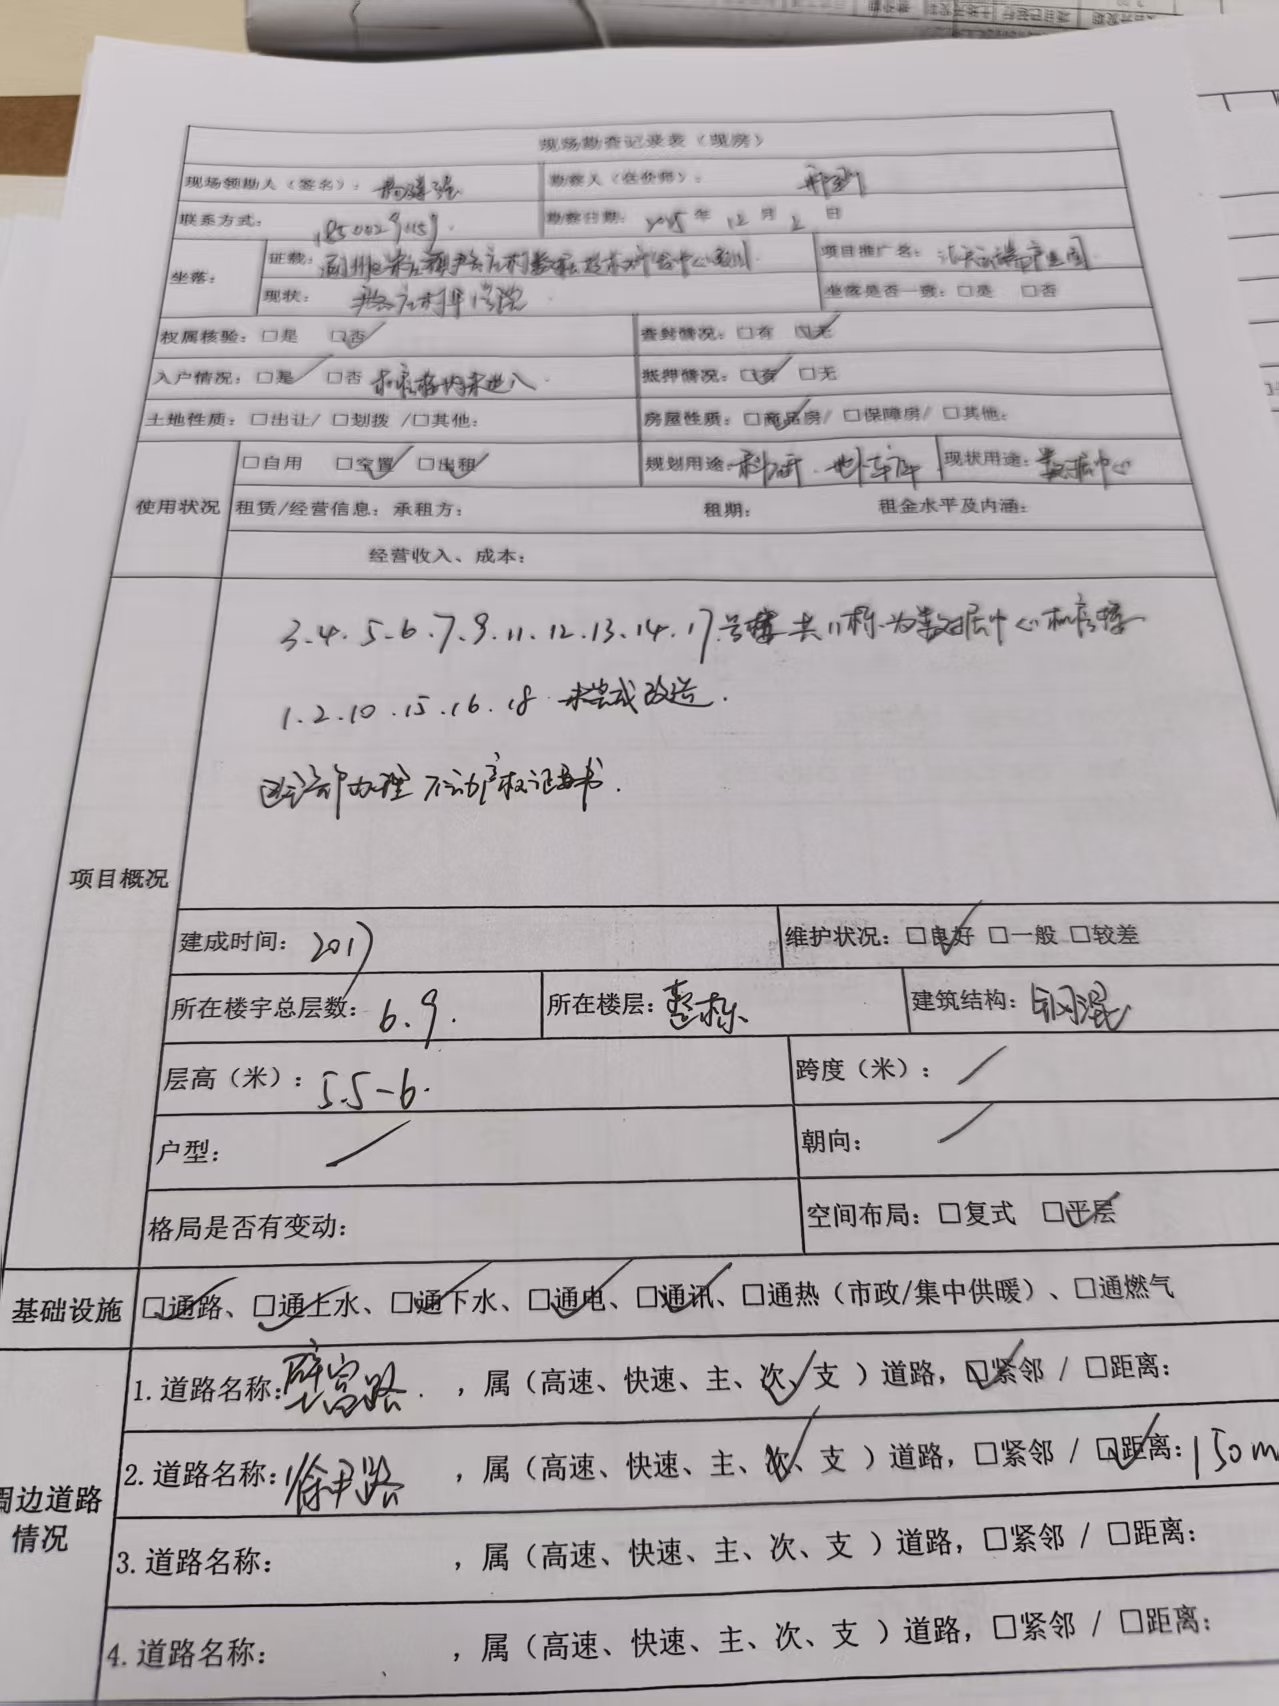 现场勘查记录表（现房）
现场领勘人（签名）： 勘察人（估价师）：
联系方式： 勘察日期： 2025 年 12 月 2 日
坐落： 证载： 项目推广名：
现状： 坐落是否一致：□是 □否
权属核验：□是 □否 查封情况：□有 □无
入户情况：□是 □否 机房楼均未进入 抵押情况：□有 □无
土地性质：□出让/ □划拨 /□其他： 房屋性质：□商品房/ □保障房/ □其他：
使用状况 □自用 □空置 □出租 规划用途：科研、地下车库 现状用途：数据中心
租赁/经营信息：承租方： 租期： 租金水平及内涵：
经营收入、成本：
3.4.5.6.7.9.11.12.13.14.17号楼 共11栋.为数据中心机房楼
1.2.10.15.16.18 未完成改造.
办理不动产权证书.
项目概况
建成时间：2017 维护状况：□良好 □一般 □较差
所在楼宇总层数：6.9. 所在楼层：整栋 建筑结构：钢混
层高（米）：5.5-6. 跨度（米）：/
户型：/ 朝向：/
格局是否有变动： 空间布局：□复式 □平层
基础设施 □通路、□通上水、□通下水、□通电、□通讯、□通热（市政/集中供暖）、□通燃气
周边道路情况
1.道路名称：壁富路 ，属（高速、快速、主、次、支 ）道路，□紧邻 / □距离：
2.道路名称：徐尹路 ，属（高速、快速、主、次、支 ）道路，□紧邻 / □距离：150m
3.道路名称： ，属（高速、快速、主、次、支 ）道路，□紧邻 / □距离：
4.道路名称： ，属（高速、快速、主、次、支 ）道路，□紧邻 / □距离：